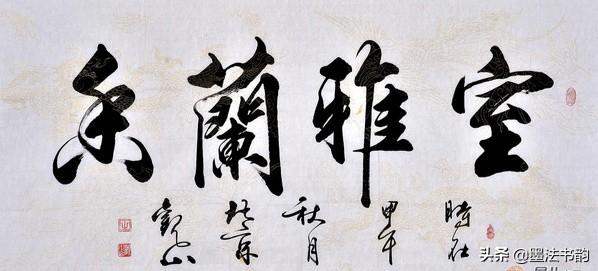 室雅蘭香
時在甲午秋月於京觀山
头条 @墨法书韵